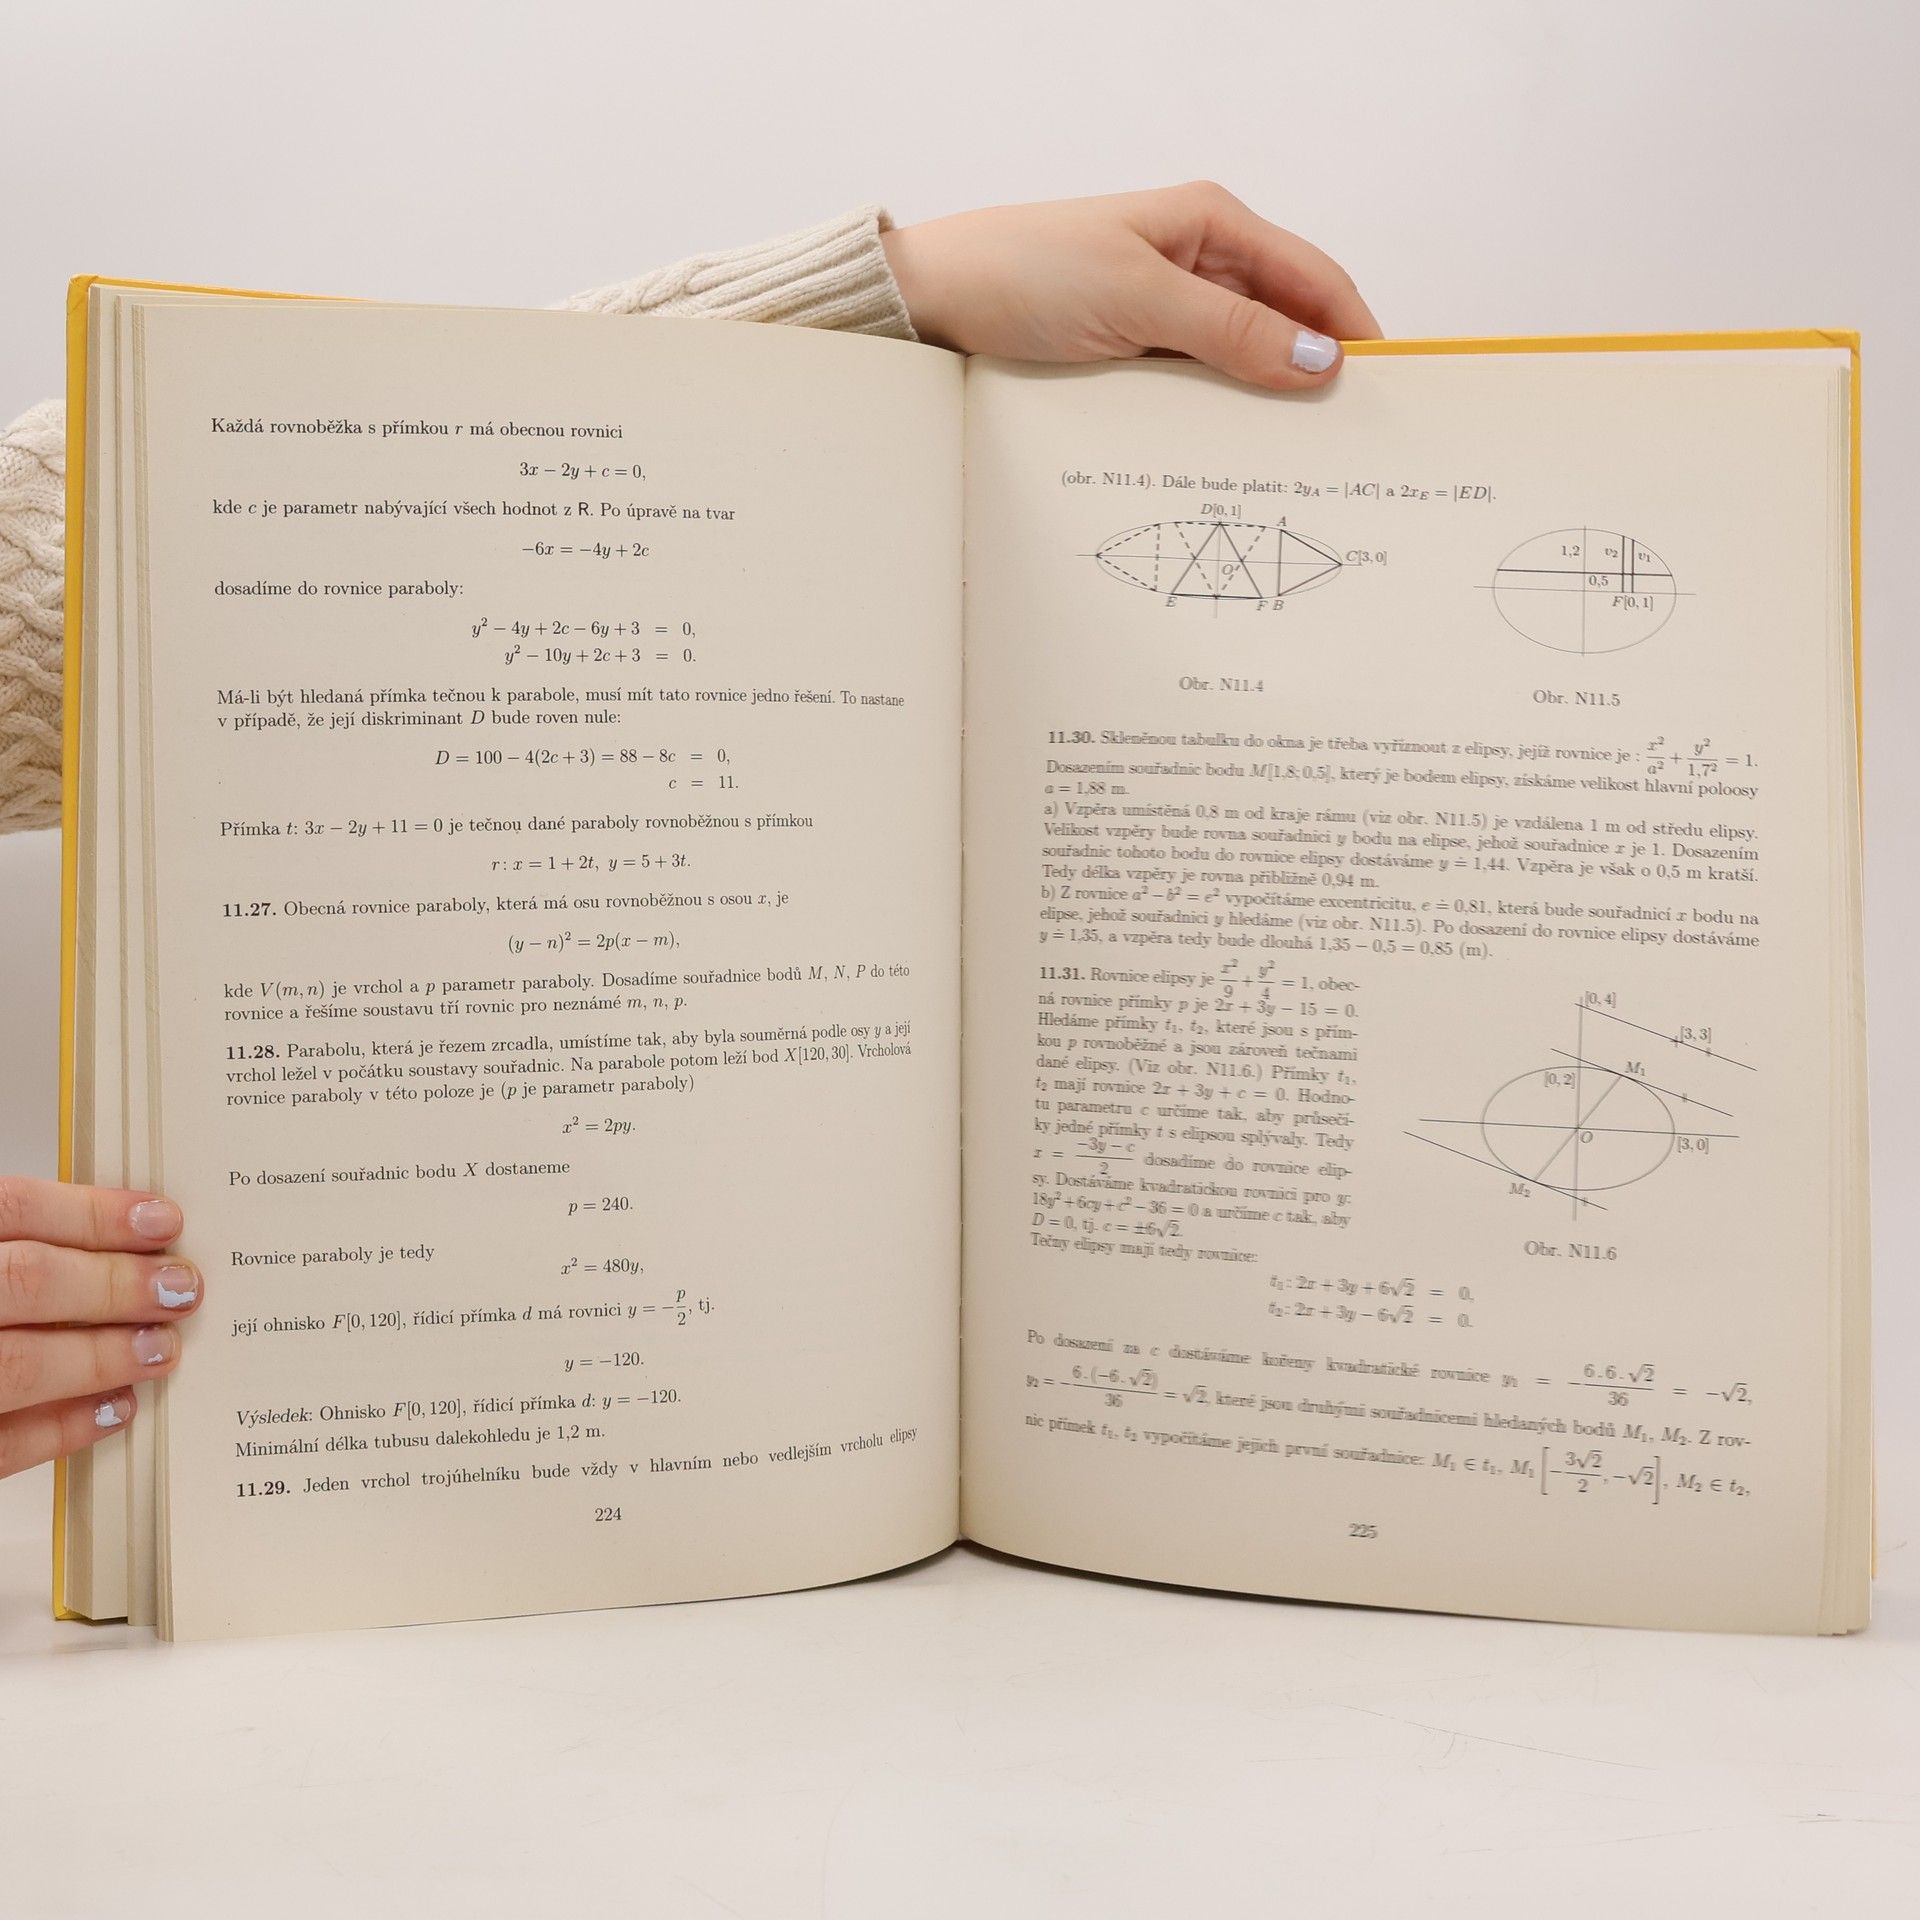 Každá rovnoběžka s přímkou r má obecnou rovnici
3x − 2y + c = 0,
kde c je parametr nabývající všech hodnot z R. Po úpravě na tvar
−6x = −4y + 2c
dosadíme do rovnice paraboly:
y² − 4y + 2c − 6y + 3 = 0,
y² − 10y + 2c + 3 = 0.
Má-li být hledaná přímka tečnou k parabole, musí mít tato rovnice jedno řešení. To nastane
v případě, že její diskriminant D bude roven nule:
D = 100 − 4(2c + 3) = 88 − 8c = 0,
c = 11.
Přímka t: 3x − 2y + 11 = 0 je tečnou dané paraboly rovnoběžnou s přímkou
r: x = 1 + 2t, y = 5 + 3t.
11.27. Obecná rovnice paraboly, která má osu rovnoběžnou s osou x, je
(y − n)² = 2p(x − m),
kde V(m, n) je vrchol a p parametr paraboly. Dosadíme souřadnice bodů M, N, P do této
rovnice a řešíme soustavu tří rovnic pro neznámé m, n, p.
11.28. Parabolu, která je řezem zrcadla, umístíme tak, aby byla souměrná podle osy y a její
vrchol ležel v počátku soustavy souřadnic. Na parabole potom leží bod X[120, 30]. Vrcholová
rovnice paraboly v této poloze je (p je parametr paraboly)
x² = 2py.
Po dosazení souřadnic bodu X dostaneme
p = 240.
Rovnice paraboly je tedy
x² = 480y,
její ohnisko F[0, 120], řídicí přímka d má rovnici y = −p/2, tj.
y = −120.
Výsledek: Ohnisko F[0, 120], řídicí přímka d: y = −120.
Minimální délka tubusu dalekohledu je 1,2 m.
11.29. Jeden vrchol trojúhelníku bude vždy v hlavním nebo vedlejším vrcholu elipsy
224
(obr. N11.4). Dále bude platit: 2y_A = |AC| a 2x_E = |ED|.
D[0, 1]
A
C[3, 0]
O
E
F B
Obr. N11.4
1,2
v₂
v₁
0,5
F[0, 1]
Obr. N11.5
11.30. Skleněnou tabulku do okna je třeba vyříznout z elipsy, jejíž rovnice je : x²/a² + y²/1,7² = 1.
Dosazením souřadnic bodu M[1,8; 0,5], který je bodem elipsy, získáme velikost hlavní poloosy
a = 1,88 m.
a) Vzpěra umístěná 0,8 m od kraje rámu (viz obr. N11.5) je vzdálena 1 m od středu elipsy.
Velikost vzpěry bude rovna souřadnici y bodu na elipse, jehož souřadnice x je 1. Dosazením
souřadnic tohoto bodu do rovnice elipsy dostáváme y ≐ 1,44. Vzpěra je však o 0,5 m kratší.
Tedy délka vzpěry je rovna přibližně 0,94 m.
b) Z rovnice a² − b² = e² vypočítáme excentricitu, e ≐ 0,81, která bude souřadnicí x bodu na
elipse, jehož souřadnici y hledáme (viz obr. N11.5). Po dosazení do rovnice elipsy dostáváme
y ≐ 1,35, a vzpěra tedy bude dlouhá 1,35 − 0,5 = 0,85 (m).
11.31. Rovnice elipsy je x²/9 + y²/4 = 1, obec-
ná rovnice přímky p je 2x + 3y − 15 = 0.
Hledáme přímky t₁, t₂, které jsou s přím-
kou p rovnoběžné a jsou zároveň tečnami
dané elipsy. (Viz obr. N11.6.) Přímky t₁,
t₂ mají rovnice 2x + 3y + c = 0. Hodno-
tu parametru c určíme tak, aby průsečí-
ky jedné přímky t s elipsou splývaly. Tedy
x = (−3y − c)/2 dosadíme do rovnice elip-
sy. Dostáváme kvadratickou rovnici pro y:
18y² + 6cy + c² − 36 = 0 a určíme c tak, aby
D = 0, tj. c = ±6√2.
Tečny elipsy mají tedy rovnice:
[0, 4]
[3, 3]
M₁
[0, 2]
O
[3, 0]
M₂
Obr. N11.6
t₁: 2x + 3y + 6√2 = 0,
t₂: 2x + 3y − 6√2 = 0.
Po dosazení za c dostáváme kořeny kvadratické rovnice y₁ = −6.6.√2/36 = −√2,
y₂ = −6.(−6.√2)/36 = √2, které jsou druhými souřadnicemi hledaných bodů M₁, M₂. Z rov-
nic přímek t₁, t₂ vypočítáme jejich první souřadnice: M₁ ∈ t₁, M₁[−3√2/2, −√2], M₂ ∈ t₂,
225